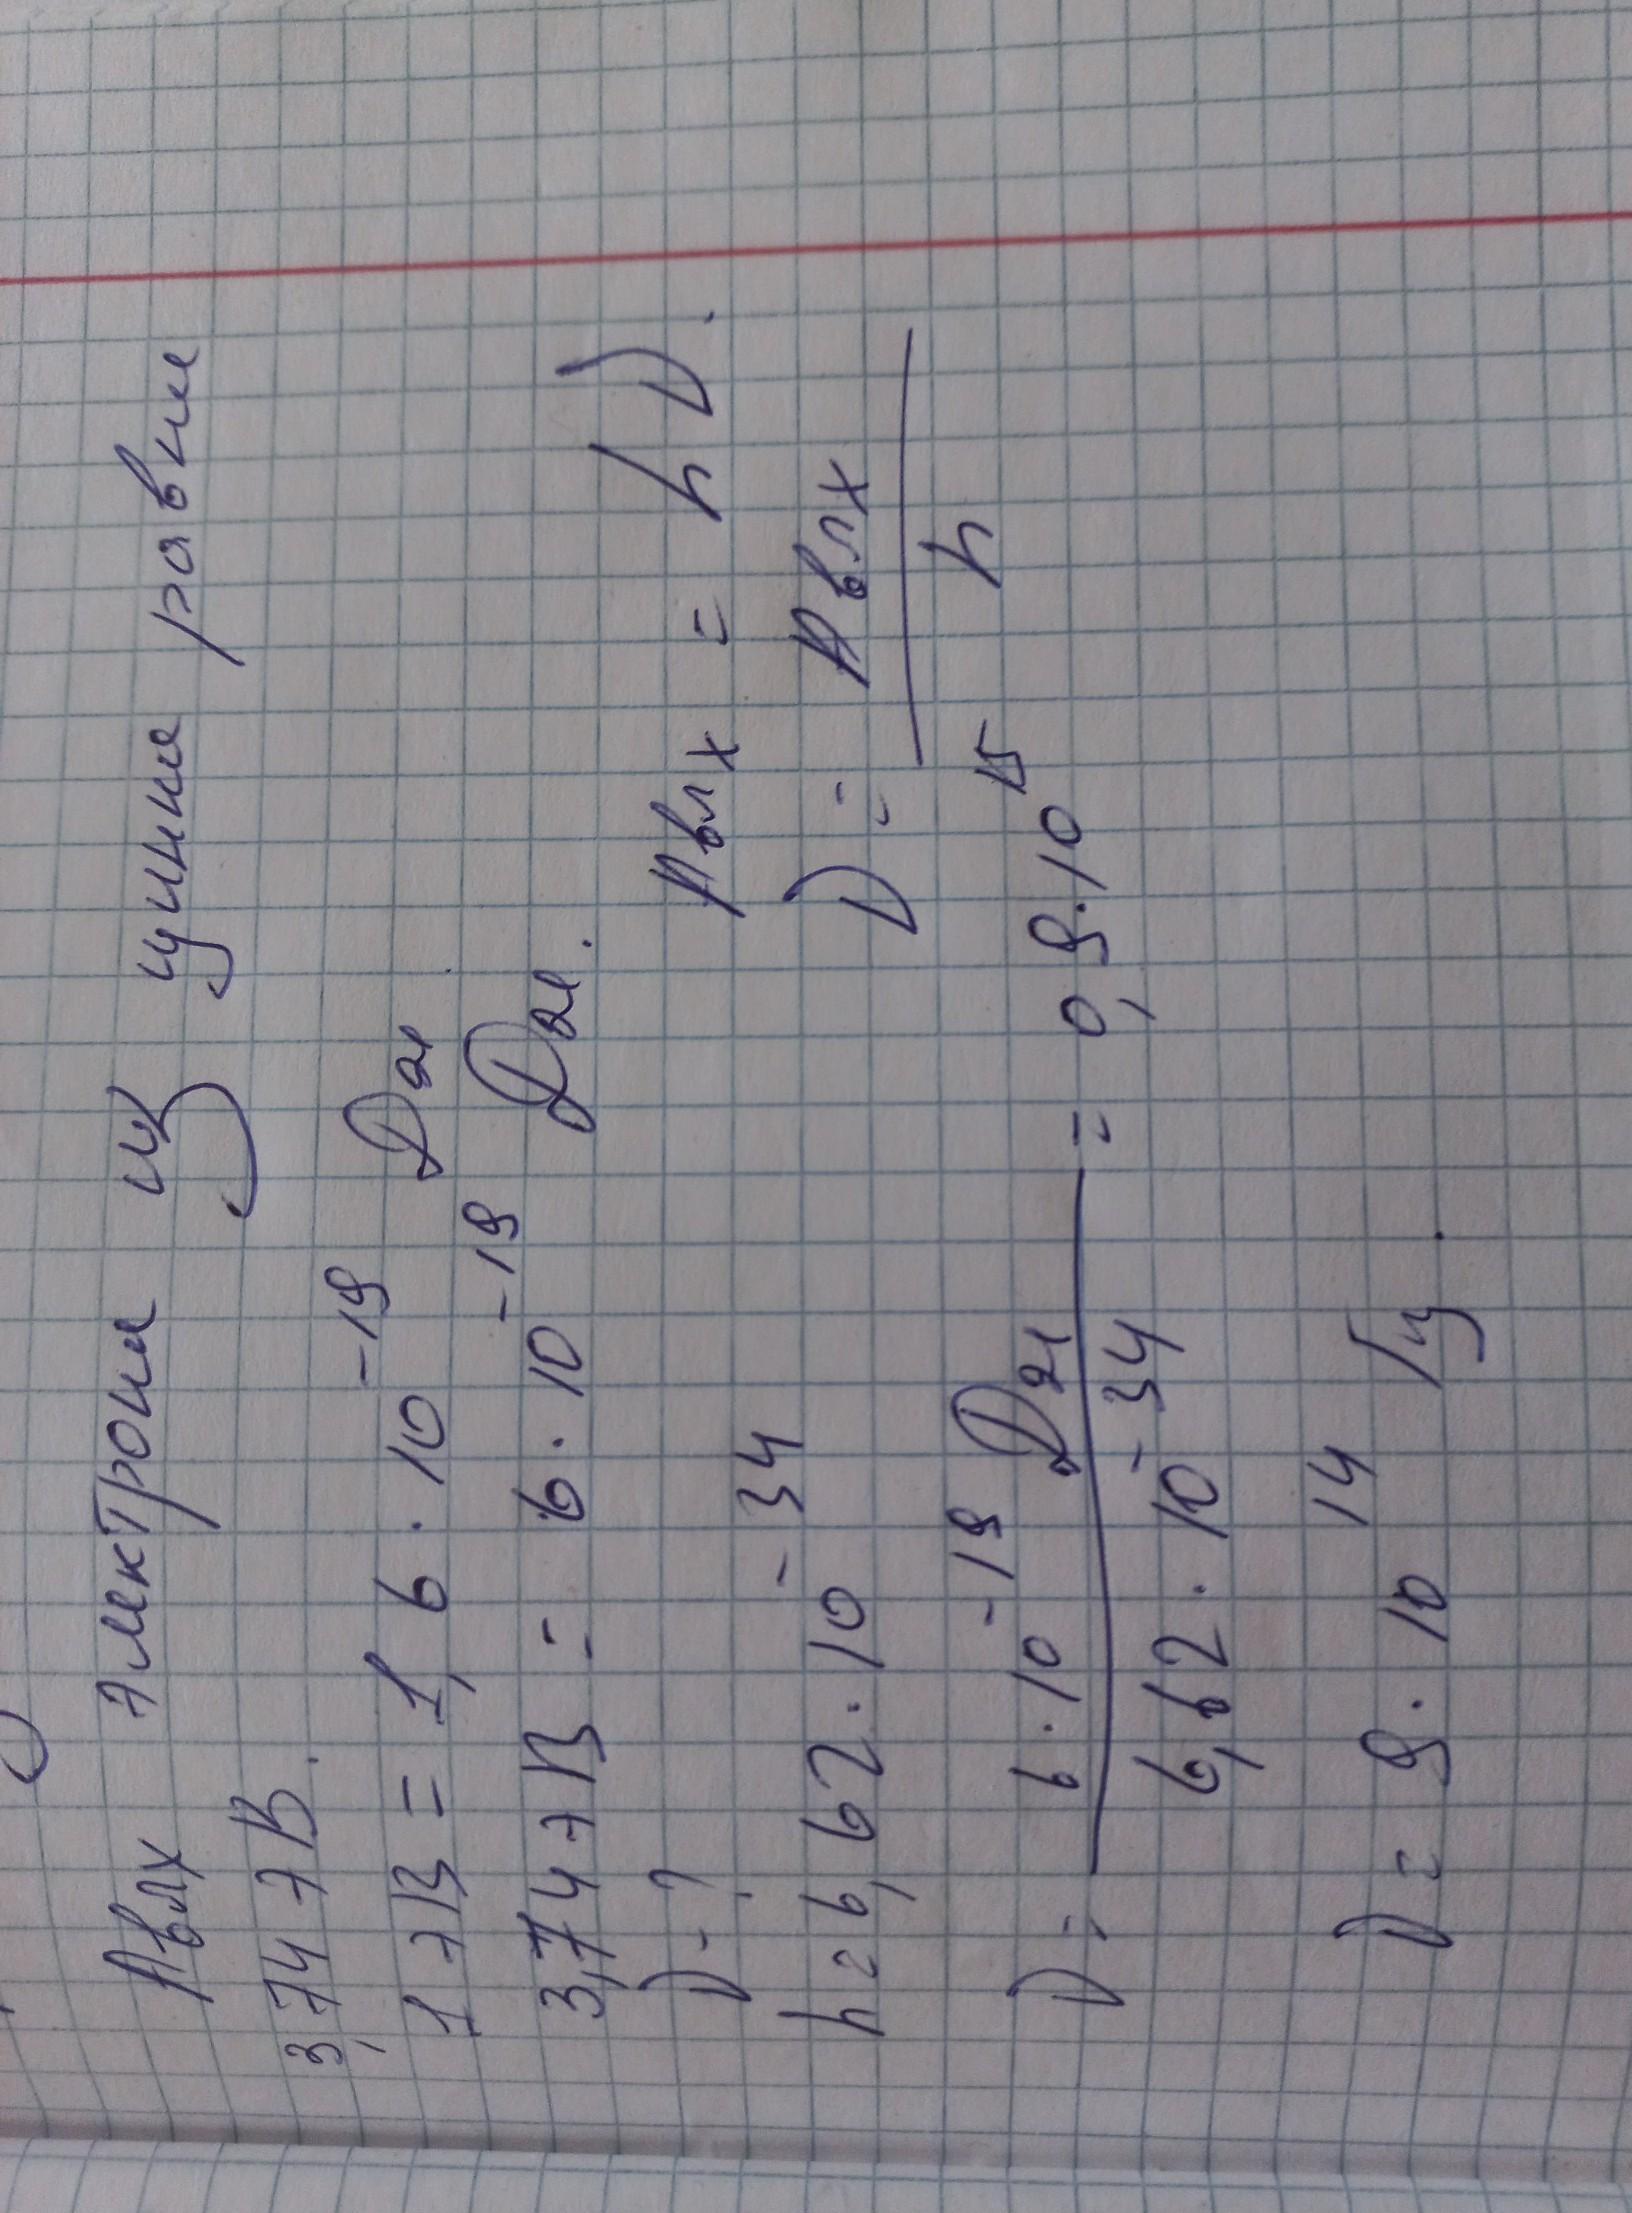 Aвлх электрона из цинка равна
3,74 эВ.
1 эВ = 1,6 · 10⁻¹⁹ Дж
3,74 эВ = 6 · 10⁻¹⁹ Дж.
ν - ?
Aвлх = hν.
h = 6,62 · 10⁻³⁴
ν = Aвлх / h
ν = 6 · 10⁻¹⁹ Дж / 6,62 · 10⁻³⁴ = 0,9 · 10¹⁵
ν = 9 · 10¹⁴ Гц.